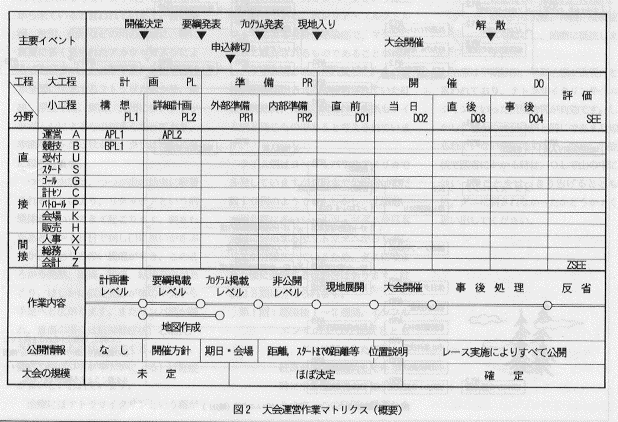 主要イベント 開催決定 要綱発表 プログラム発表 現地入り 解散
申込締切 大会開催
工程 大工程 計画 PL 準備 PR 開催 DO 評価 SEE
分野 小工程 構想 PL1 詳細計画 PL2 外部準備 PR1 内部準備 PR2 直前 DO1 当日 DO2 直後 DO3 事後 DO4
直接 運営 A APL1 APL2
競技 B BPL1
受付 U
スタート S
ゴール G
計セン C
パトロール P
会場 K
販売 H
間接 人事 X
総務 Y
会計 Z ZSEE
作業内容 計画書レベル 要綱掲載レベル プログラム掲載レベル 非公開レベル 現地展開 大会開催 事後処理 反省
地図作成
公開情報 なし 開催方針 期日・会場 距離,スタートまでの距離等 位置説明 レース実施によりすべて公開
大会の規模 未定 ほぼ決定 確定
図2 大会運営作業マトリクス(概要)